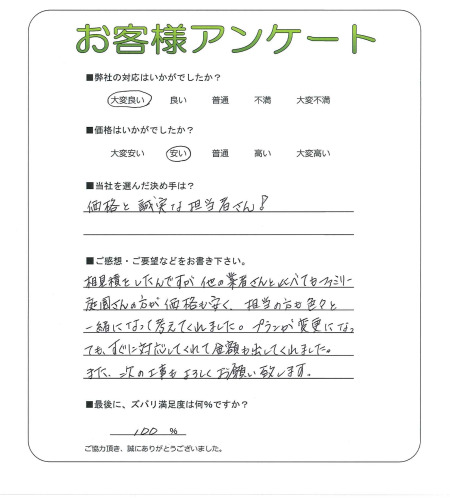 お客様アンケート
■弊社の対応はいかがでしたか？
大変良い 良い 普通 不満 大変不満
■価格はいかがでしたか？
大変安い 安い 普通 高い 大変高い
■当社を選んだ決め手は？
価格と誠実な担当者さん！
■ご感想・ご要望などをお書き下さい。
相見積をしたんですが他の業者さんと比べてもファミリー
庭園さんの方が価格も安く、担当の方も色々と
一緒になって考えてくれました。プランが変更になっ
ても、すぐに対応してくれて金額も出してくれました。
また、次の工事もよろしくお願い致します。
■最後に、ズバリ満足度は何％ですか？
100 ％
ご協力頂き、誠にありがとうございました。